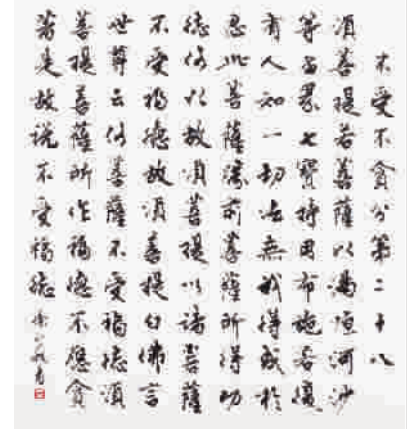 不受不貪分第二十八
須菩提若菩薩以滿恒河沙
等世界七寶持用布施若復
有人知一切法無我得成於
忍此菩薩勝前菩薩所得功
德何以故須菩提以諸菩薩
不受福德故須菩提白佛言
世尊云何菩薩不受福德須
菩提菩薩所作福德不應貪
著是故說不受福德